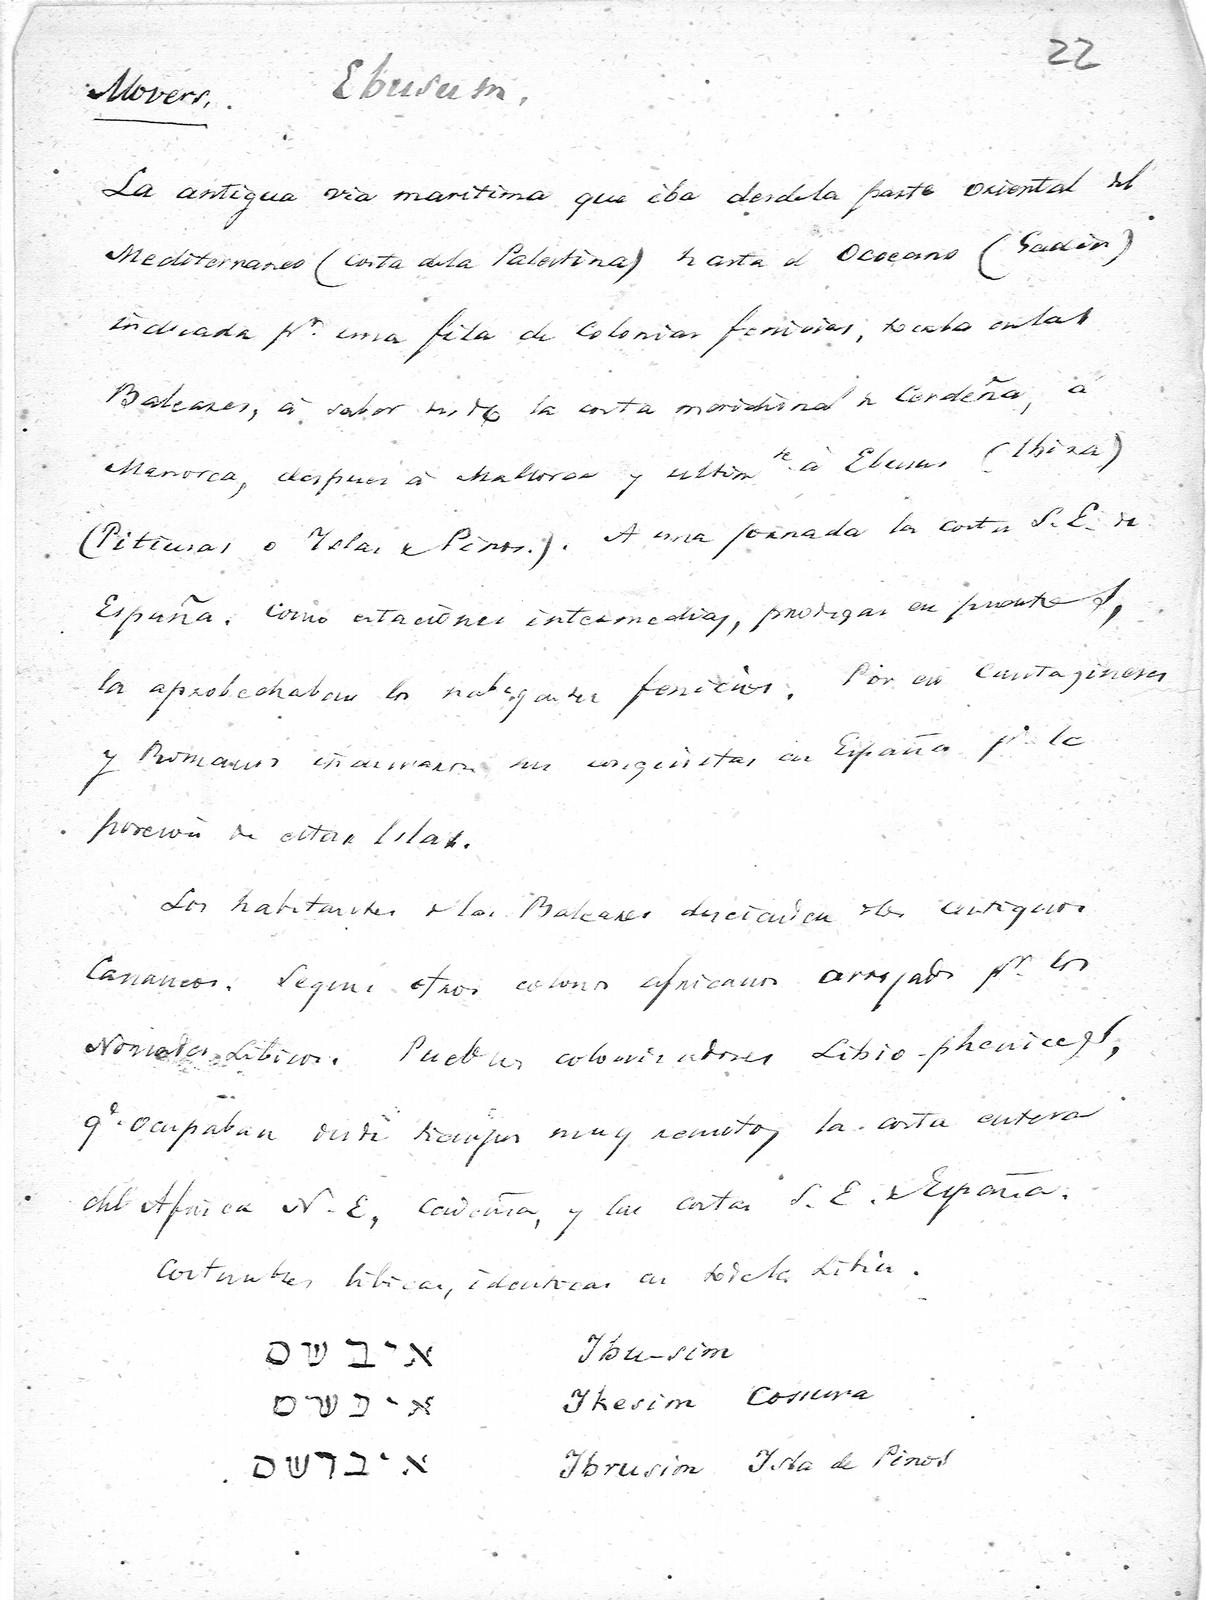 22
Movers. Ebusum.
La antigua via maritima que iba desdela parte oriental del
Mediterraneo (costa dela Palestina) hasta el Ococeano (Gadir)
indicada pr. una fila de Colonias fenicias, tocaba enlas
Baleares, á saber desde la costa meridional de Cerdeña, á
Menorca, despues á Mallorca y ultim te á Ebusus (Ibiza)
(Pitiusas o Yslas de Pinos.). A una jornada la costa S.E. de
España. Como estaciones intermedias, prodigas en
la aprobechaban los nabegantes fenicios. Por eso Cartagineses
y Romanos sus conquistas en España pr. la
posesion de estas Islas.
Los habitantes de las Baleares descienden de los antiguos
Cananeos. Segun otros colonos africanos arrojados pr. los
Nomadas Libicos. Pueblos colonizadores Libio-phenices,
qe. ocupaban desde tiempos muy remotos la costa entera
del Africa N.E, Cerdeña, y las costas S.E. de España.
Costumbres libicas, identicas en toda la Libia.
איבשם Ibu-sim
איכשם Ikesim Cossura
איברשם Ibrusim Isla de Pinos